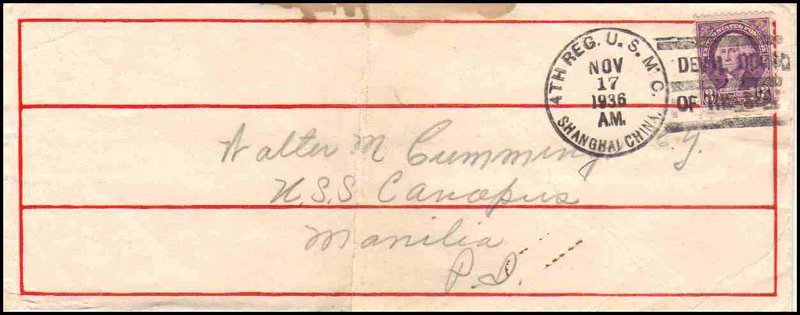 4TH REG. U.S.M.C.
NOV
17
1936
A.M.
SHANGHAI CHINA.
DEVIL
OF THE
Walter M Cumming
U.S.S Canopus
Manilia
P.I.